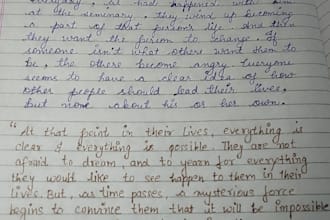 everyday, as had happened with him
at the seminary, they wind up becoming
a part of that person's life. And then
they want the person to change. If
someone isn't what others want them to
be, the others become angry. Everyone
seems to have a clear idea of how
other people should lead their lives,
but none about his or her own.
"At that point in their lives, everything is
clear & everything is possible. They are not
afraid to dream, and to yearn for everything
they would like to see happen to them in their
lives. But, as time passes, a mysterious force
begins to convince them that it will be impossible